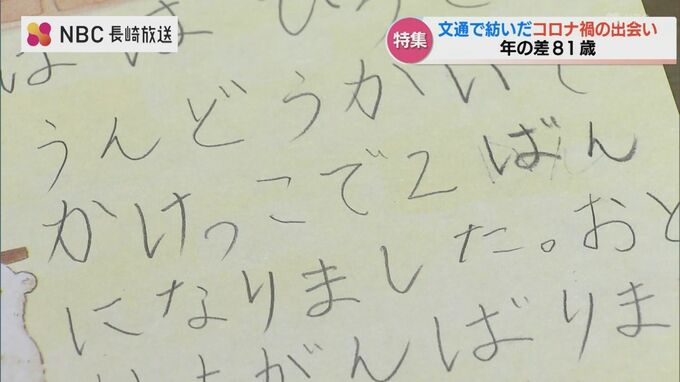 NBC 長崎放送
特集
文通で紡いだコロナ禍の出会い
年の差81歳
うんどうかいで
かけっこで2ばん
になりました。おと
がんばりま